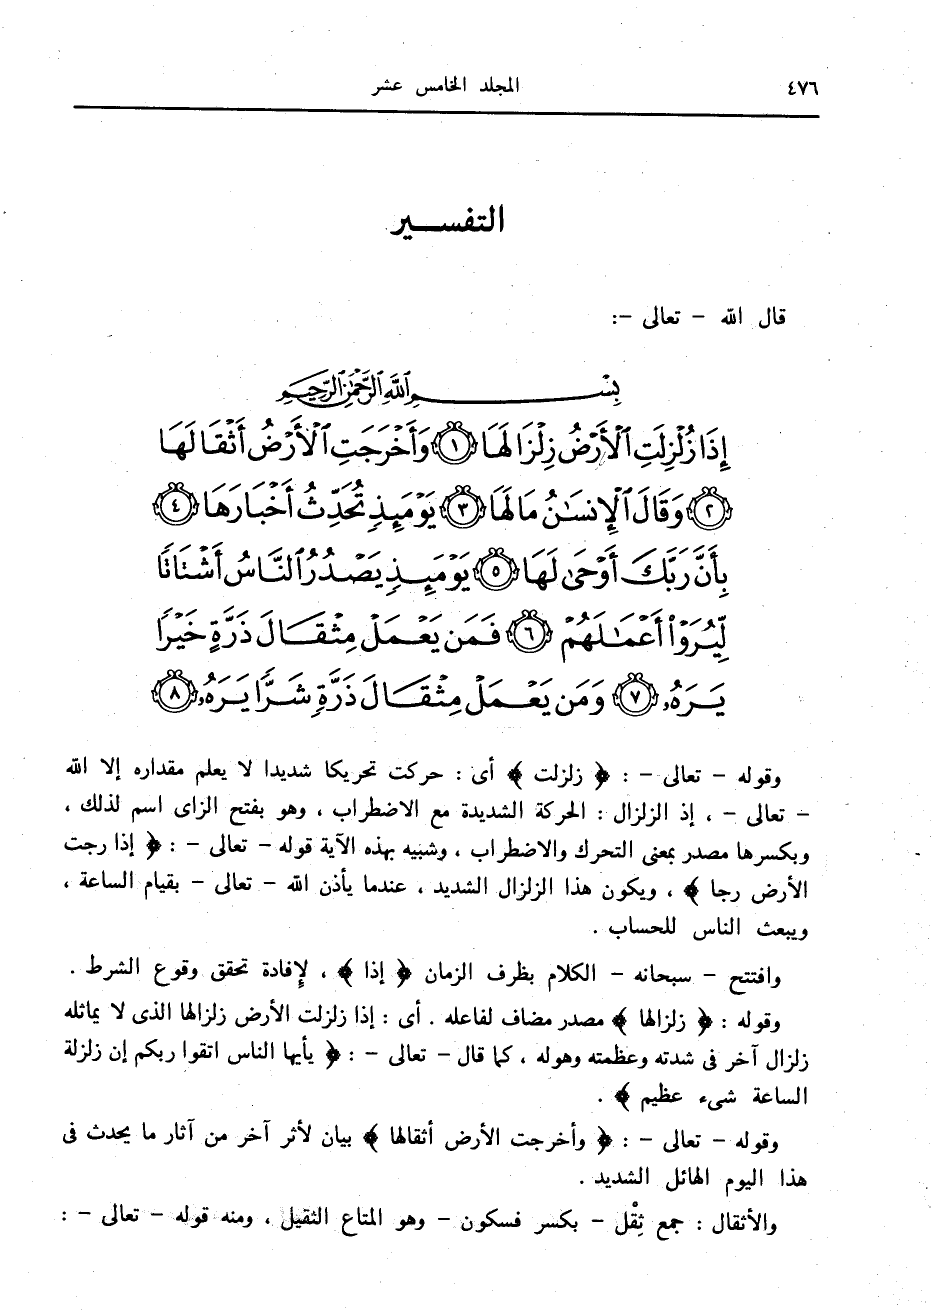 ٤٧٦
المجلد الخامس عشر
التفسير
قال الله - تعالى -:
بِسْمِ ٱللَّهِ ٱلرَّحْمَٰنِ ٱلرَّحِيمِ
إِذَا زُلْزِلَتِ ٱلْأَرْضُ زِلْزَالَهَا ١ وَأَخْرَجَتِ ٱلْأَرْضُ أَثْقَالَهَا
٢ وَقَالَ ٱلْإِنسَٰنُ مَالَهَا ٣ يَوْمَئِذٍ تُحَدِّثُ أَخْبَارَهَا ٤
بِأَنَّ رَبَّكَ أَوْحَىٰ لَهَا ٥ يَوْمَئِذٍ يَصْدُرُ ٱلنَّاسُ أَشْتَاتًا
لِّيُرَوْا۟ أَعْمَٰلَهُمْ ٦ فَمَن يَعْمَلْ مِثْقَالَ ذَرَّةٍ خَيْرًا
يَرَهُۥ ٧ وَمَن يَعْمَلْ مِثْقَالَ ذَرَّةٍ شَرًّا يَرَهُۥ ٨
وقوله - تعالى - : ﴿ زلزلت ﴾ أى : حركت تحريكا شديدا لا يعلم مقداره إلا الله
- تعالى - ، إذ الزلزال : الحركة الشديدة مع الاضطراب ، وهو بفتح الزاى اسم لذلك ،
وبكسرها مصدر بمعنى التحرك والاضطراب ، وشبيه بهذه الآية قوله - تعالى - : ﴿ إذا رجت
الأرض رجا ﴾ ، ويكون هذا الزلزال الشديد ، عندما يأذن الله - تعالى - بقيام الساعة ،
ويبعث الناس للحساب .
وافتتح - سبحانه - الكلام بظرف الزمان ﴿ إذا ﴾ ، لإفادة تحقق وقوع الشرط .
وقوله : ﴿ زلزالها ﴾ مصدر مضاف لفاعله . أى : إذا زلزلت الأرض زلزالها الذى لا يماثله
زلزال آخر فى شدته وعظمته وهوله ، كما قال - تعالى - : ﴿ يأيها الناس اتقوا ربكم إن زلزلة
الساعة شىء عظيم ﴾ .
وقوله - تعالى - : ﴿ وأخرجت الأرض أثقالها ﴾ بيان لأثر آخر من آثار ما يحدث فى
هذا اليوم الهائل الشديد .
والأثقال : جمع ثِقْل - بكسر فسكون - وهو المتاع الثقيل ، ومنه قوله - تعالى - :